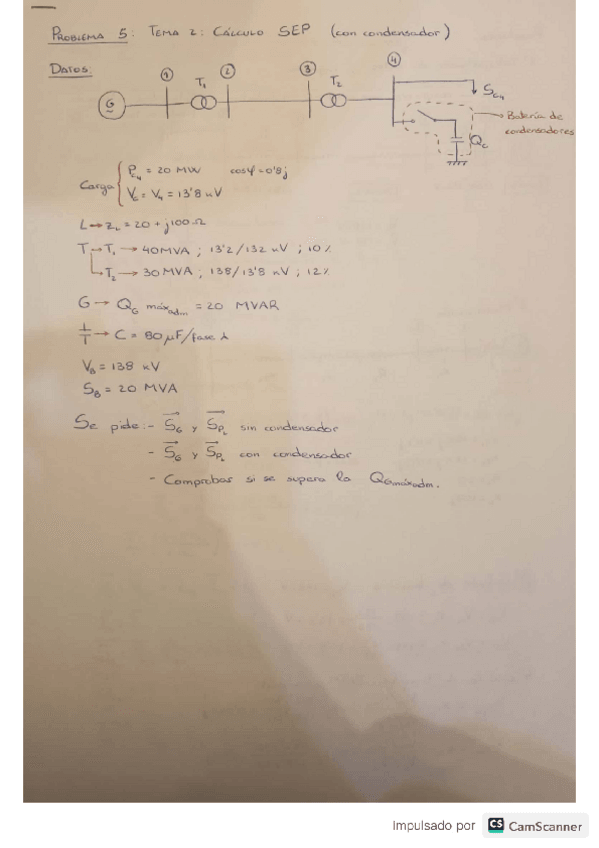 PROBLEMA 5: TEMA 2: CÁLCULO SEP (con condensador)
DATOS:
① T₁ ② ③ T₂ ④
G
Sc₄
Batería de condensadores
Qc
Carga { Pc₄ = 20 MW cosφ=0'8j
Vc = V₄ = 13'8 kV
L→ZL = 20 + j100 Ω
T→T₁ → 40MVA ; 13'2/132 kV ; 10%
T₂ → 30 MVA ; 138/13'8 kV ; 12%
G → QG máxadm = 20 MVAR
→ C = 80 μF/fase
VB = 138 kV
SB = 20 MVA
Se pide: - SG y SPL sin condensador
- SG y SPL con condensador
- Comprobar si se supera la QGmáxadm.
Impulsado por CS CamScanner